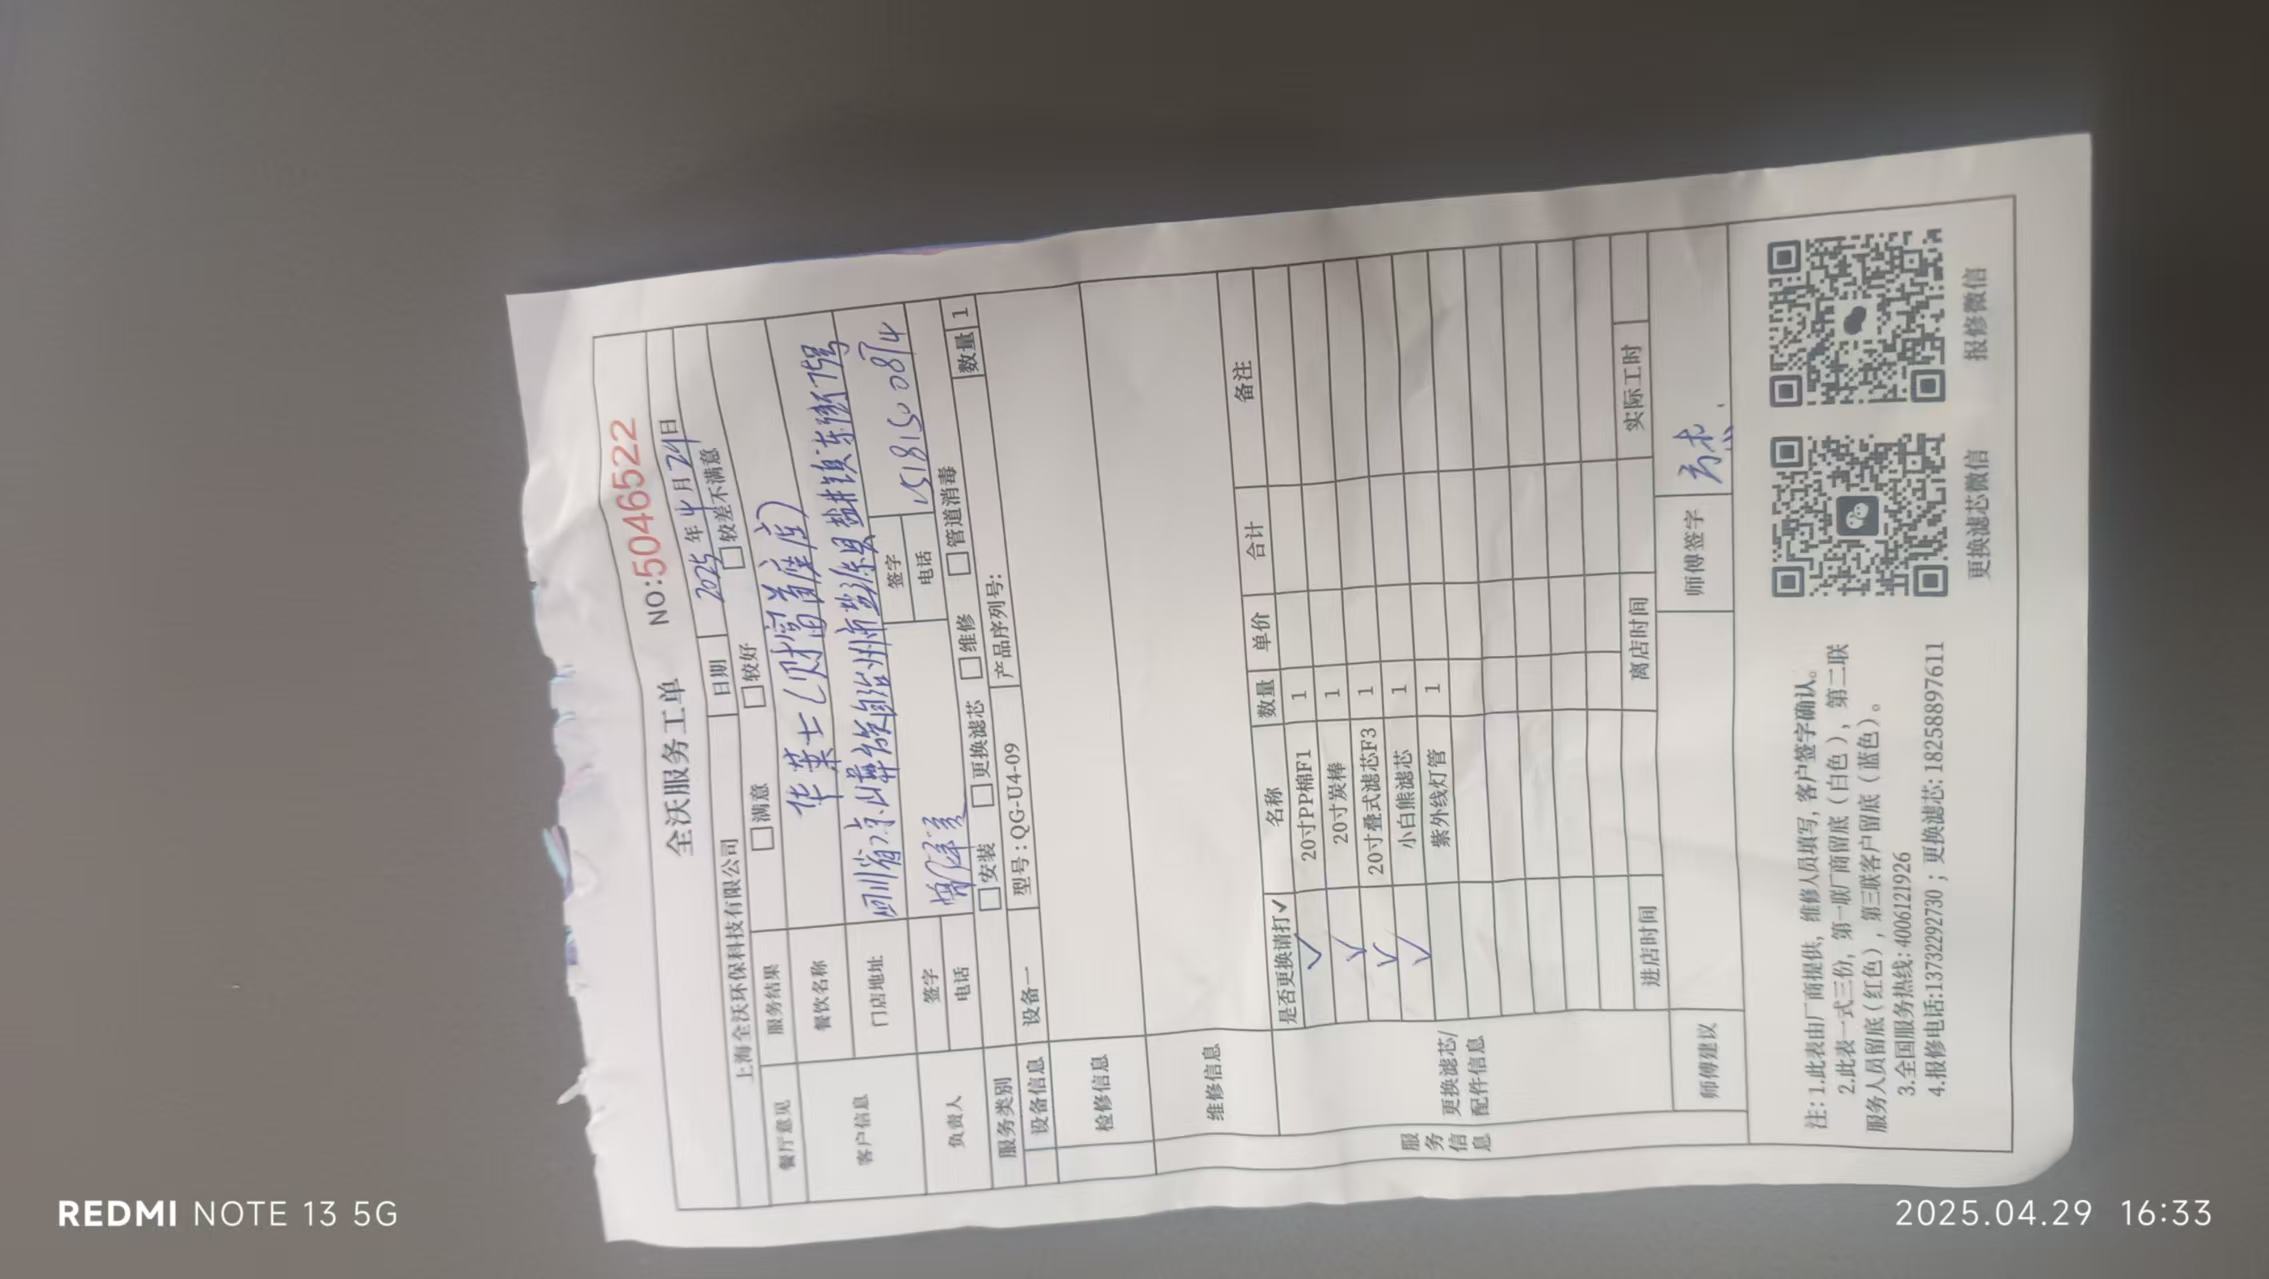 全沃服务工单
NO:5046522
上海全沃环保科技有限公司 日期 2025年4月29日
餐厅意见 服务结果 □满意 □较好 □较差不满意
客户信息 餐饮名称 华莱士(财富首座店)
门店地址 四川省凉山彝族自治州市盐源县盐井镇东街79号
负责人 签字 签字
电话 电话 15181500814
服务类别 □安装 □更换滤芯 □维修 □管道消毒
设备信息 设备一 型号:QG-U4-09 产品序列号: 数量 1
检修信息
维修信息
服务信息
更换滤芯/配件信息
是否更换请打✓ 名称 数量 单价 合计 备注
✓ 20寸PP棉F1 1
✓ 20寸炭棒 1
✓ 20寸叠式滤芯F3 1
✓ 小白熊滤芯 1
紫外线灯管 1
进店时间 离店时间 实际工时
师傅建议 师傅签字
注:1.此表由厂商提供,维修人员填写,客户签字确认。
2.此表一式三份,第一联厂商留底(白色),第二联
服务人员留底(红色),第三联客户留底(蓝色)。
3.全国服务热线:4006121926
4.报修电话:13732292730;更换滤芯:18258897611
更换滤芯微信 报修微信
REDMI NOTE 13 5G
2025.04.29 16:33